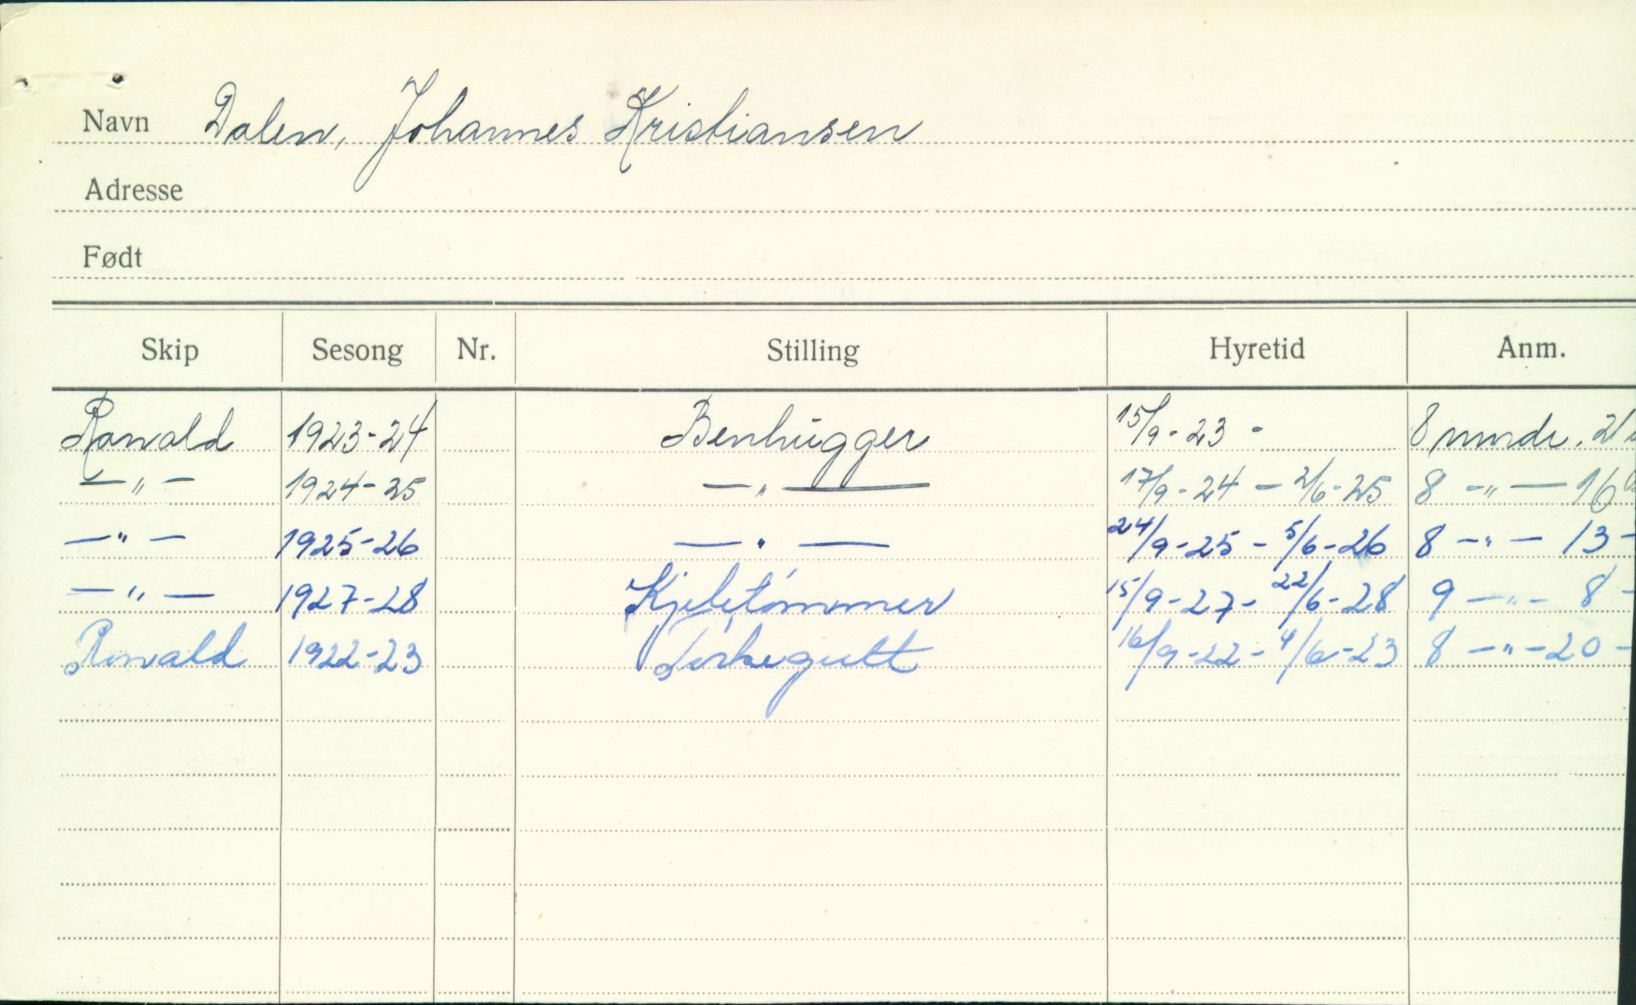 Navn Dalen, Johannes Kristiansen
Adresse
Født
Skip Sesong Nr. Stilling Hyretid Anm.
Ronald 1923-24 Benhugger 15/9-23 - 8 mndr.
—„— 1924-25 —„— 17/9-24 - 2/6-25 8 -„- 16
—„— 1925-26 —„— 24/9-25 - 5/6-26 8 -„- 13 -
—„— 1927-28 Kjeletømmer 15/9-27 - 22/6-28 9 -„- 8 -
Ronald 1922-23 Dørkegutt 16/9-22 - 4/6-23 8 -„- 20 -